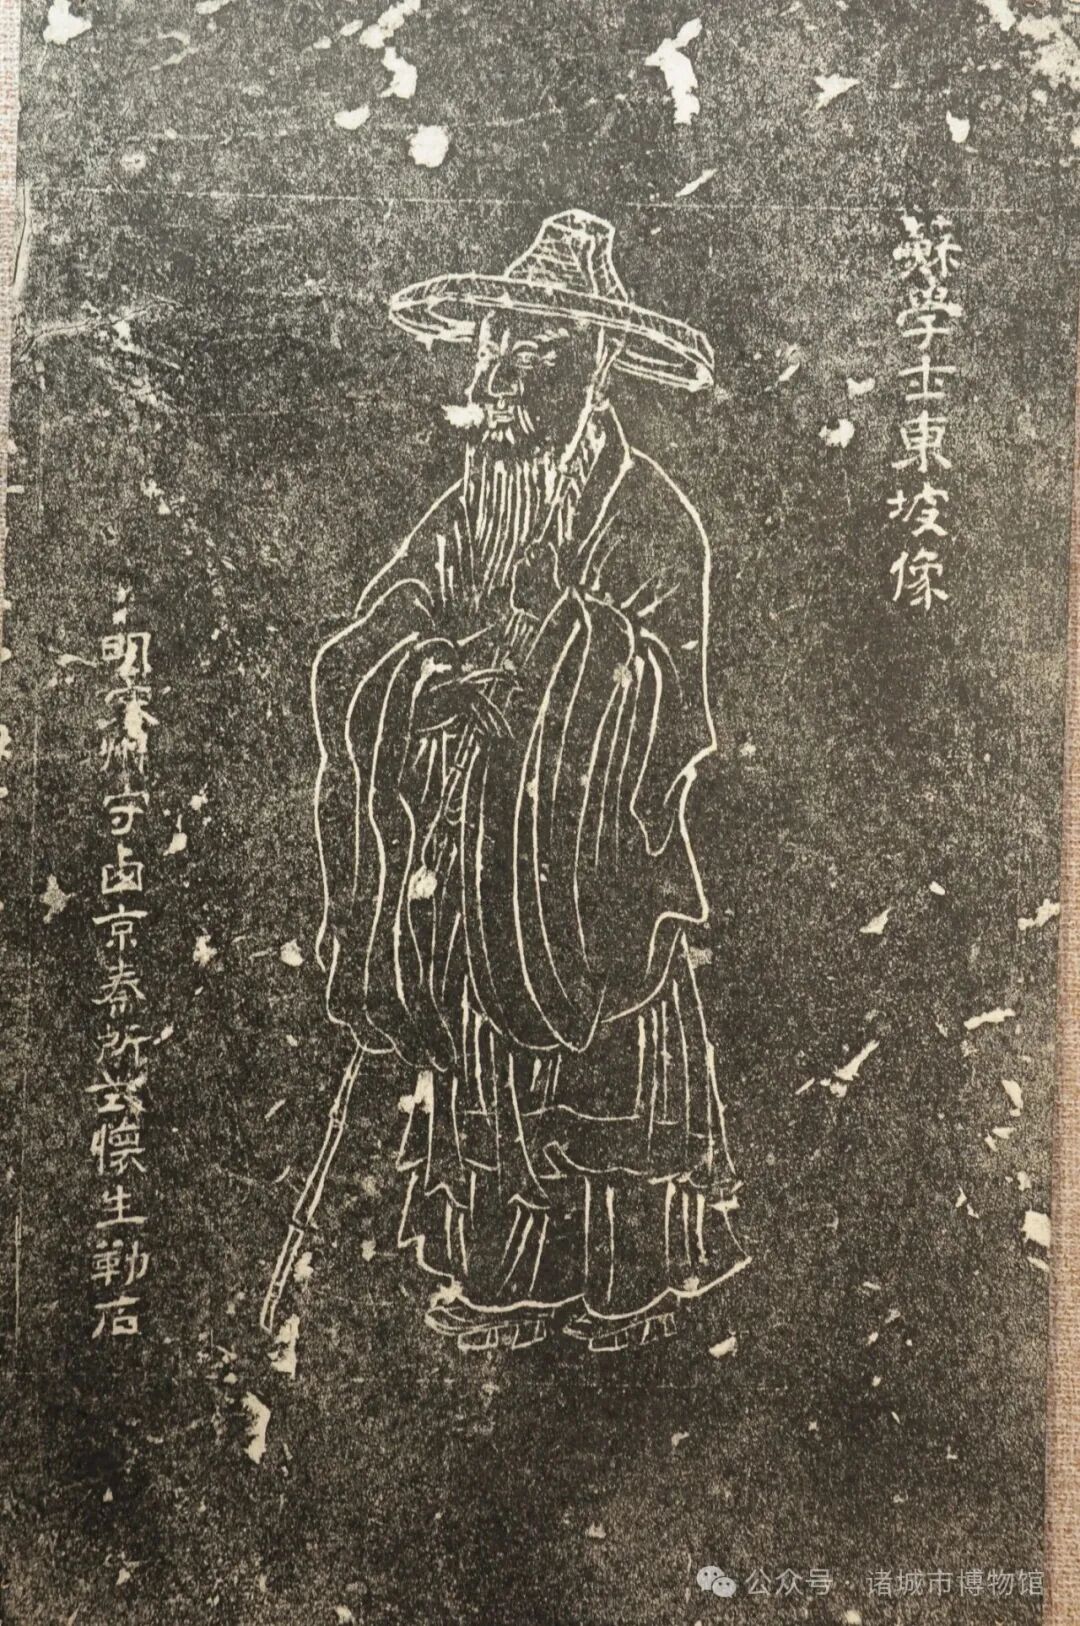 蘇學士東坡像
明州守鹵京秦所式懷生勒石
公众号 · 诸城市博物馆